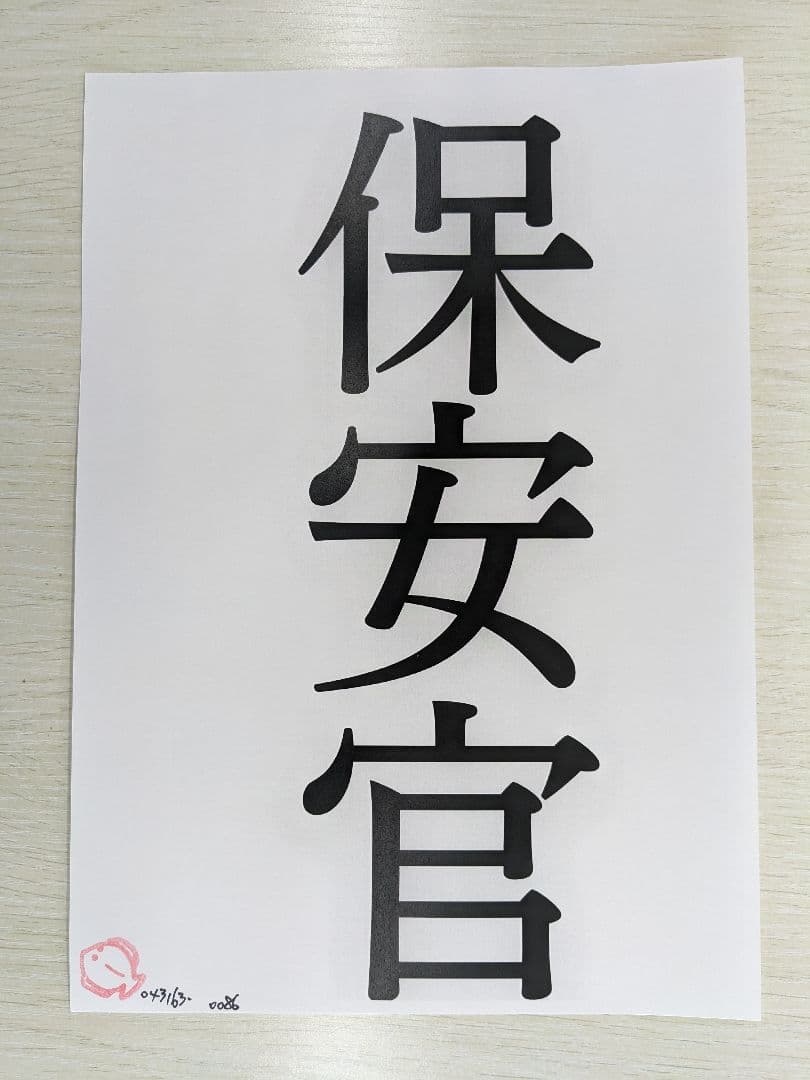 保安官
043163-0086